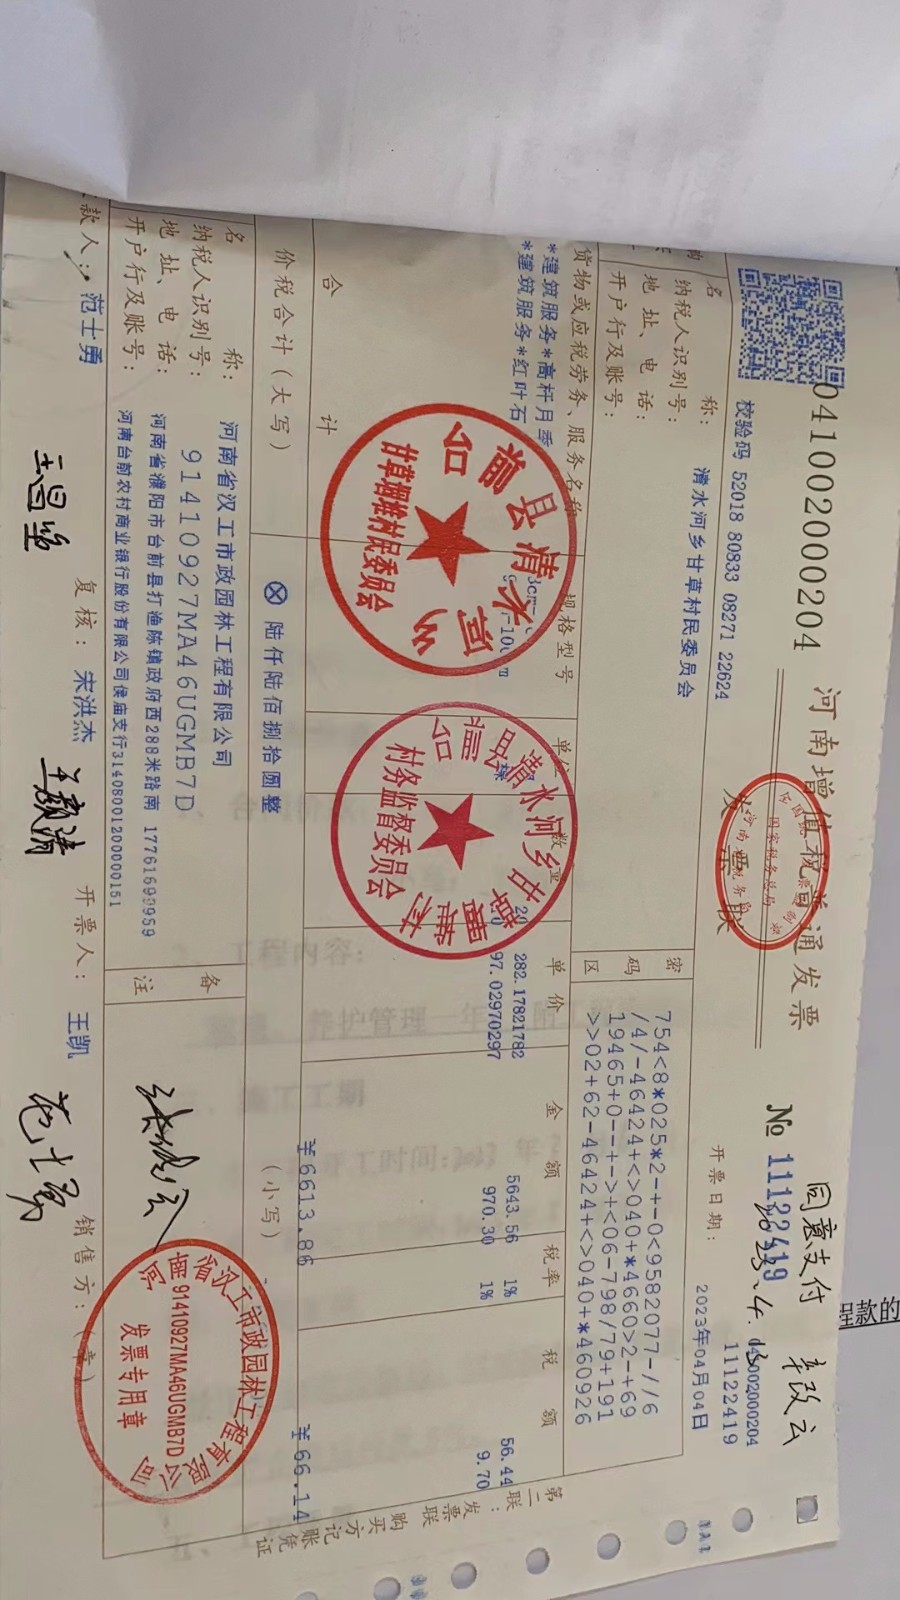 041002000204
河南增值税普通发票
发票联
№ 11122419
同意支付 辛改云
2023.4.
041002000204
11122419
校验码 52018 80833 08271 22624
开票日期: 2023年04月04日
名 称: 清水河乡甘草村民委员会
纳税人识别号:
地 址、电 话:
开户行及账号:
密码区
754<8*025*2-+-0<9582077-//6
/4/-46424+<>040+*4660>2-+69
19465+0--+->+<06-798/79+191
>>02+62-46424+<>040+*460926
货物或应税劳务、服务名称 规格型号 单位 数量 单价 金额 税率 税额
*建筑服务*高杆月季 282.17821782 5643.56 1% 56.44
*建筑服务*红叶石 97.02970297 970.30 1% 9.70
合 计 ￥6613.86 ￥66.14
价税合计(大写) ⊗ 陆仟陆佰捌拾圆整 (小写)
名 称: 河南省汉工市政园林工程有限公司
纳税人识别号: 91410927MA46UGMB7D
地 址、电 话: 河南省濮阳市台前县打渔陈镇政府西288米路南 17761690959
开户行及账号: 河南台前农村商业银行股份有限公司侯庙支行31408001200000151
备注
款人: 范士勇 复核: 宋洪杰 开票人: 王凯 销售方:(章)
范士勇
第二联:发票联 购买方记账凭证
台前县清水河乡
甘草堌堆村民委员会
台前县清水河乡甘草堌堆村
村务监督委员会
国家税务总局
河南省汉工市政园林工程有限公司
91410927MA46UGMB7D
发票专用章
程款的
2、工程内容:
养护管理一年
施工工期
工时间:2023 年